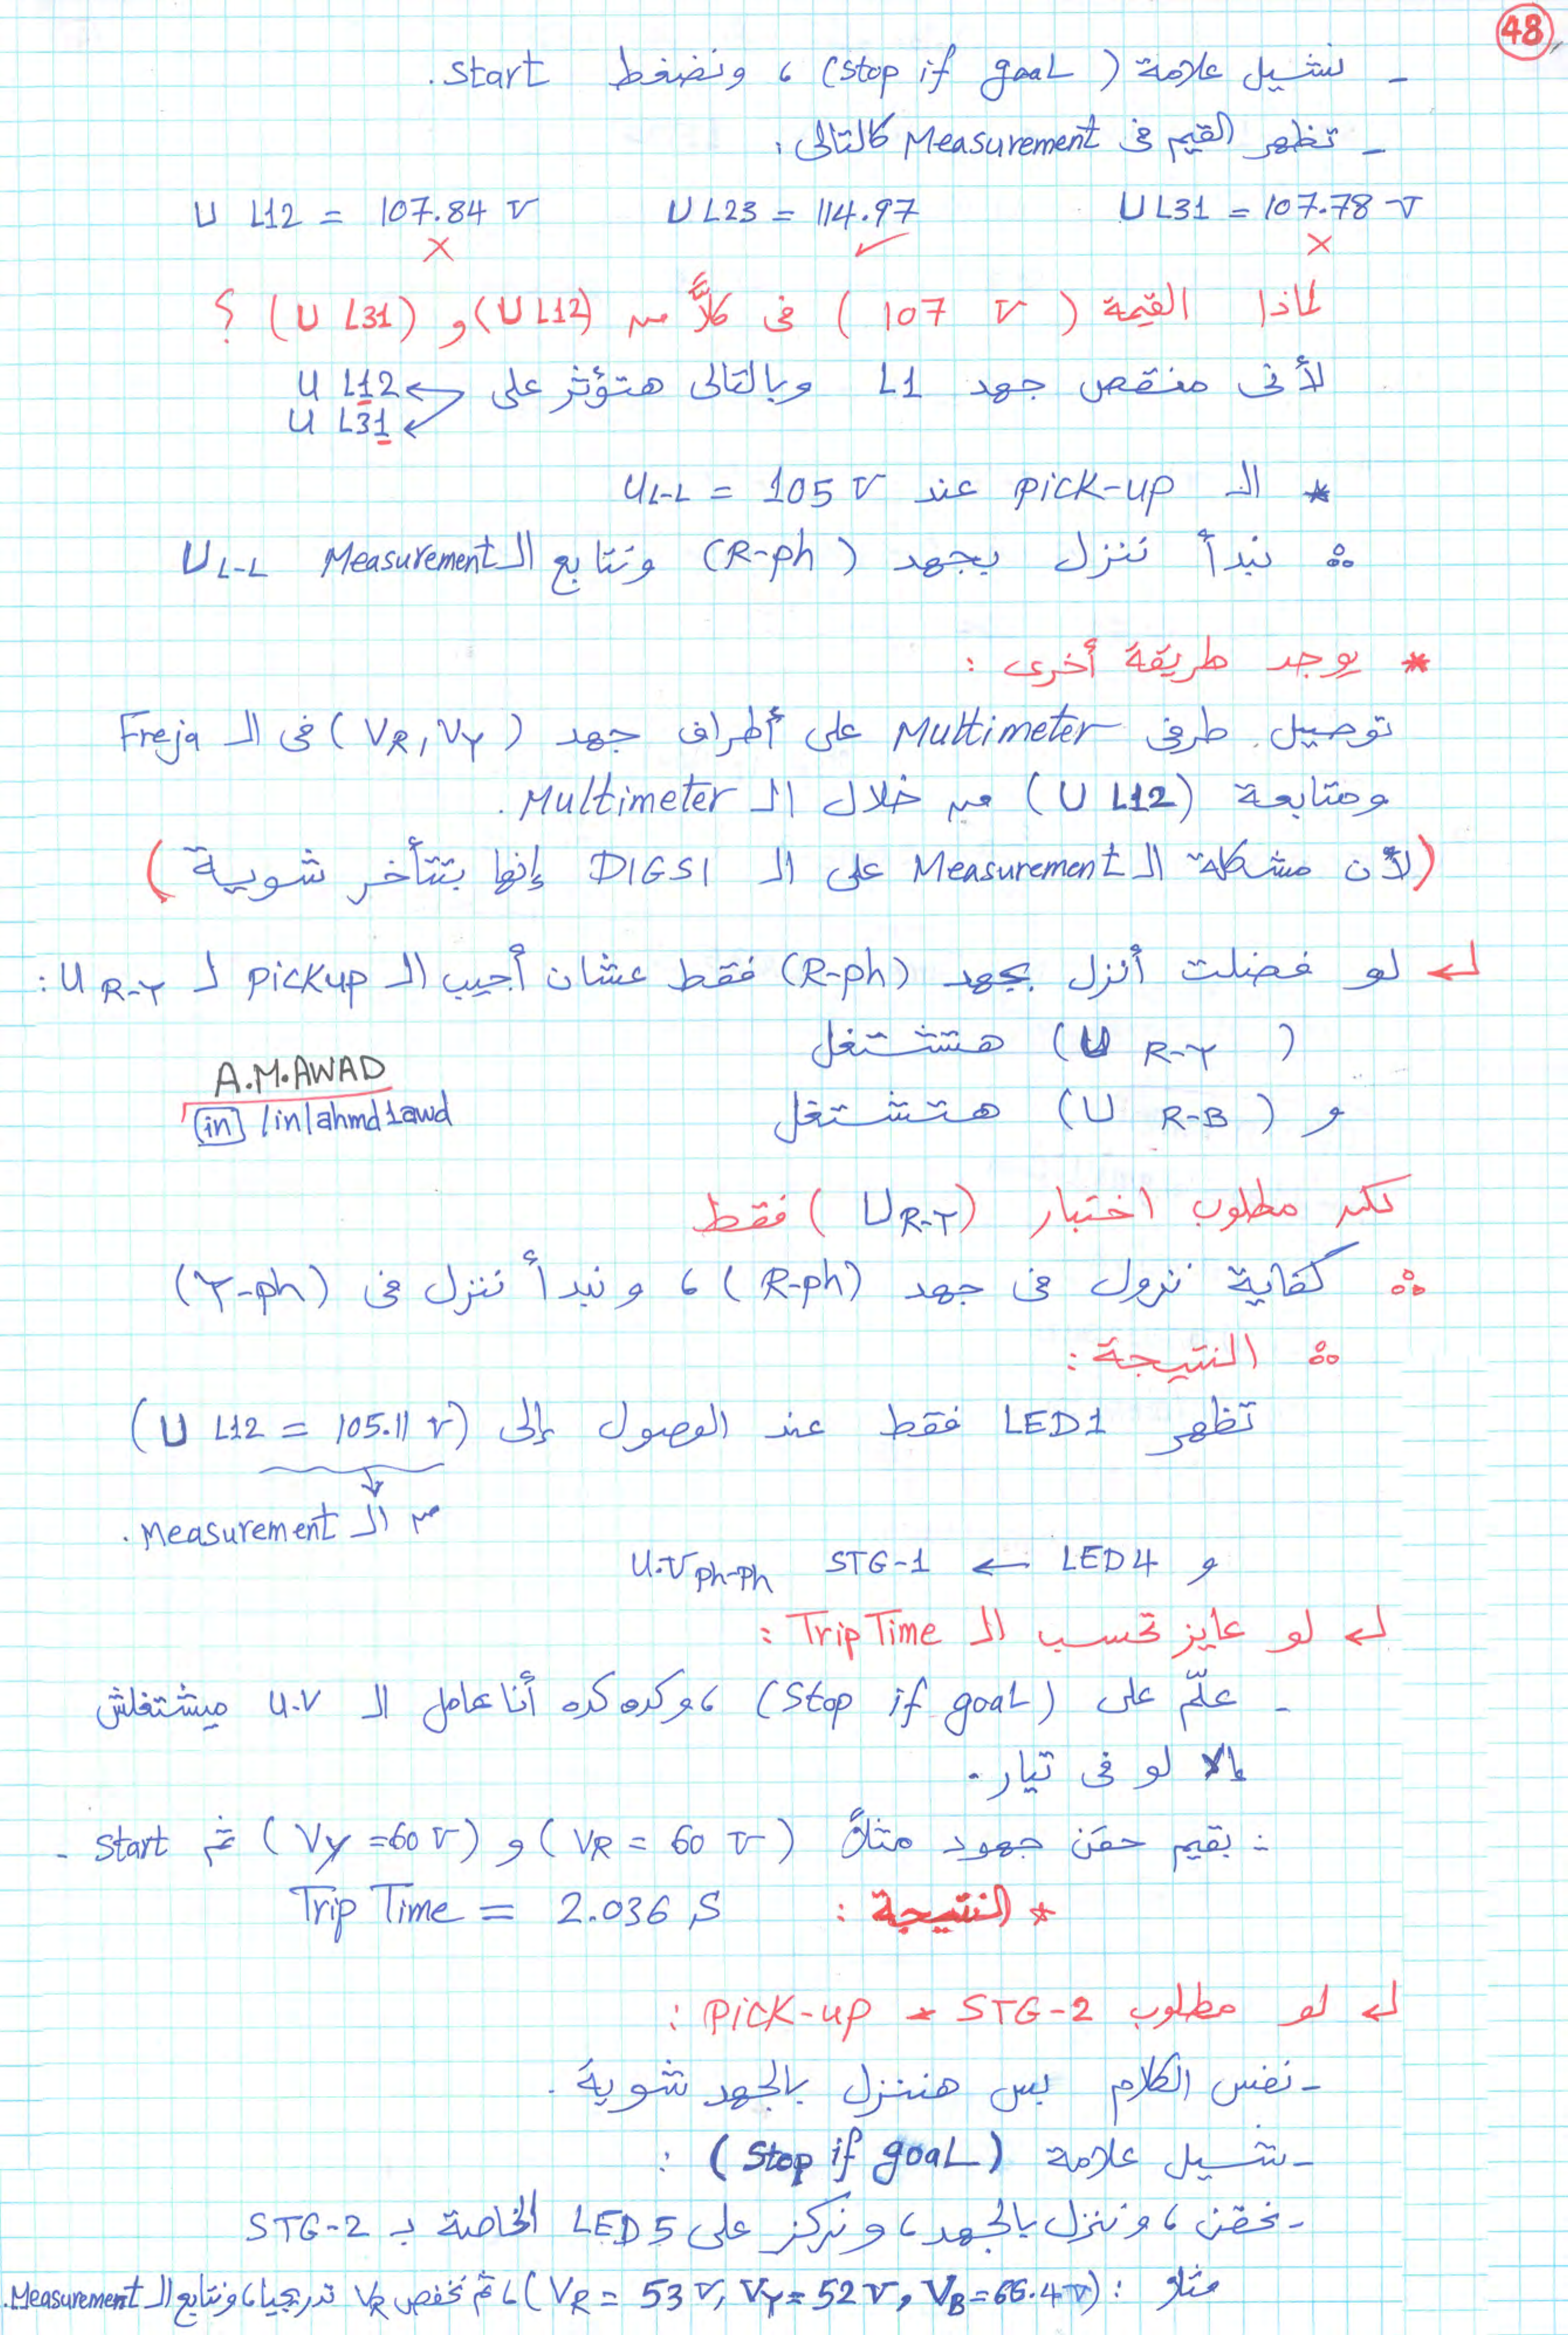 48
- نشيل علامة (stop if goal) ، ونضغط start.
- تظهر القيم فى Measurement كالتالى:
U L12 = 107.84 V   U L23 = 114.97   U L31 = 107.78 V
X   ✓   X
لماذا القيمة (107 V) فى كلاً من (U L12) و (U L31) ؟
لأنى منقص جهد L1 وبالتالى هتؤثر على U L12
U L31
* الـ pick-up عند UL-L = 105 V
∴ نبدأ ننزل بجهد (R-ph) ونتابع الـ Measurement UL-L
* يوجد طريقة أخرى :
توصيل طرفى Multimeter على أطراف جهد (VR, VY) فى الـ Freja
ومتابعة (U L12) من خلال الـ Multimeter .
(لأن مشكلة الـ Measurement على الـ DIGSI إنها بتتأخر شوية)
لو فضلت أنزل بجهد (R-ph) فقط عشان أجيب الـ pickup لـ U R-Y :
(U R-Y) هتشتغل
و (U R-B) هتشتغل
A.M.AWAD
in /in/ahmd1awd
لكن مطلوب اختبار (UR-Y) فقط
∴ كفاية نزول فى جهد (R-ph) ، و نبدأ ننزل فى (Y-ph)
∴ النتيجة :
تظهر LED1 فقط عند الوصول إلى (U L12 = 105.11 V)
من الـ Measurement .
و LED4 ← STG-1 U.V ph-ph
لو عايز تحسب الـ Trip Time :
- علّم على (Stop if goal) ، وكده كده أنا عامل الـ U.V ميشتغلش
إلا لو فى تيار .
∴ بقيم حقن جهود مثلاً (VR = 60 V) و (VY = 60 V) ثم start .
* النتيجة : Trip Time = 2.036 S
لو مطلوب STG-2 * pick-up :
- نفس الكلام بس هننزل بالجهد شوية .
- نشيل علامة (Stop if goal) :
- نحقن ، وننزل بالجهد ، و نركز على LED5 الخاصة بـ STG-2
مثلاً : (VR = 53 V, VY = 52 V, VB = 66.4 V) ، ثم نخفض VR تدريجيا ، ونتابع الـ Measurement.